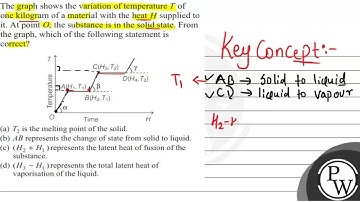 The graph shows the variation of temperature T of
one kilogram of a material with the heat H supplied to
it. At point O, the substance is in the solid state. From
the graph, which of the following statement is
correct?
Temperature
T
C(H3, T2)
γ
D(H4, T2)
A(H1, T1)
β
B(H2, T1)
α
O
H
(a) T2 is the melting point of the solid.
(b) AB represents the change of state from solid to liquid.
(c) (H2 + H1) represents the latent heat of fusion of the
substance.
(d) (H3 − H1) represents the total latent heat of
vaporisation of the liquid.
Key Concept:-
T1 ← AB → solid to liquid
CD → liquid to vapour
H2-H
PW